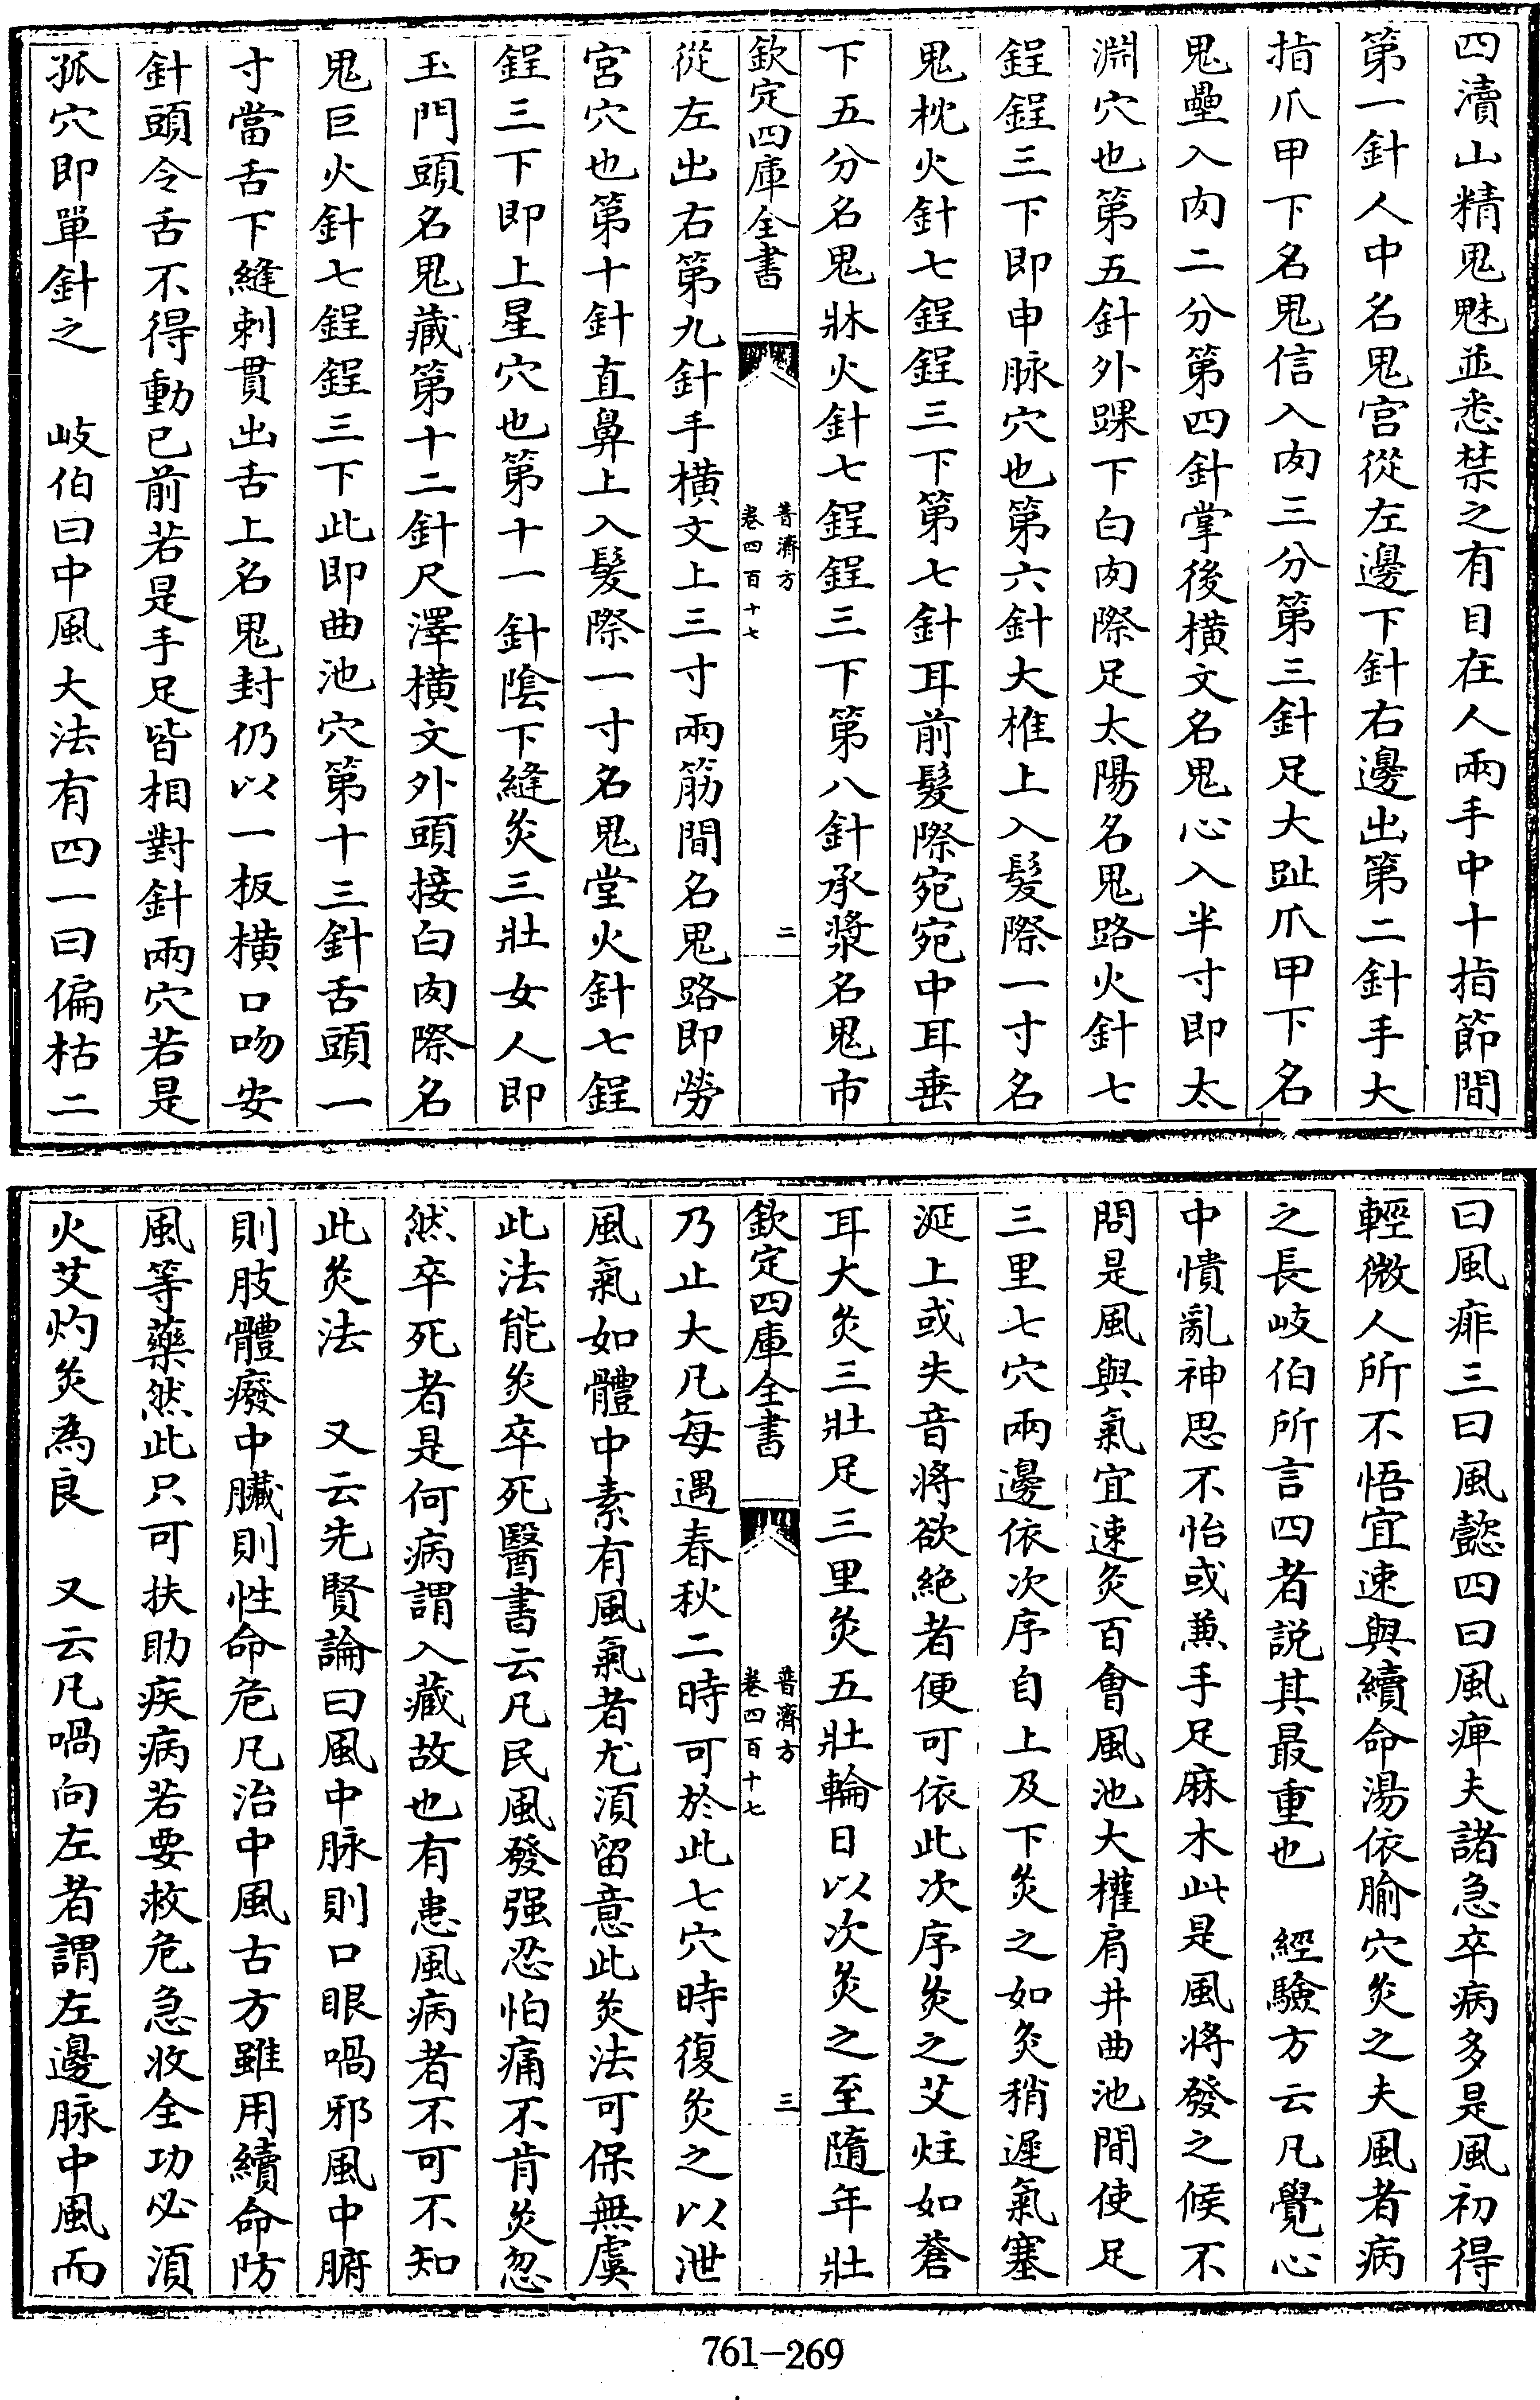 四瀆山精鬼魅並悉禁之有目在人兩手中十指節間
第一針人中名鬼宫從左邊下針右邊出第二針手大
指爪甲下名鬼信入肉三分第三針足大趾爪甲下名
鬼壘入肉二分第四針掌後横文名鬼心入半寸即太
淵穴也第五針外踝下白肉際足太陽名鬼路火針七
鋥鋥三下即申脉穴也第六針大椎上入髮際一寸名
鬼枕火針七鋥鋥三下第七針耳前髮際宛宛中耳垂
下五分名鬼牀火針七鋥鋥三下第八針承漿名鬼市
欽定四庫全書
普濟方
卷四百十七
二
從左出右第九針手横文上三寸兩筋間名鬼路即勞
宮穴也第十針直鼻上入髮際一寸名鬼堂火針七鋥
鋥三下即上星穴也第十一針陰下縫灸三壯女人即
玉門頭名鬼藏第十二針尺澤横文外頭接白肉際名
鬼巨火針七鋥鋥三下此即曲池穴第十三針舌頭一
寸當舌下縫刺貫出舌上名鬼封仍以一板横口吻安
針頭令舌不得動已前若是手足皆相對針兩穴若是
孤穴即單針之　岐伯曰中風大法有四一曰偏枯二
曰風痱三曰風懿四曰風痺夫諸急卒病多是風初得
輕微人所不悟宜速與續命湯依腧穴灸之夫風者病
之長岐伯所言四者説其最重也　經驗方云凡覺心
中憒亂神思不怡或兼手足麻木此是風將發之候不
問是風與氣宜速灸百會風池大權肩井曲池間使足
三里七穴兩邊依次序自上及下灸之如灸稍遲氣塞
涎上或失音將欲絶者便可依此次序灸之艾炷如蒼
耳大灸三壯足三里灸五壯輪日以次灸之至隨年壯
欽定四庫全書
普濟方
卷四百十七
三
乃止大凡每遇春秋二時可於此七穴時復灸之以泄
風氣如體中素有風氣者尤湏留意此灸法可保無虞
此法能灸卒死醫書云凡民風發强忍怕痛不肯灸忽
然卒死者是何病謂入藏故也有患風病者不可不知
此灸法　又云先賢論曰風中脉則口眼喎邪風中腑
則肢體癈中臟則性命危凡治中風古方雖用續命防
風等藥然此只可扶助疾病若要救危急收全功必湏
火艾灼灸為良　又云凡喎向左者謂左邊脉中風而
761-269